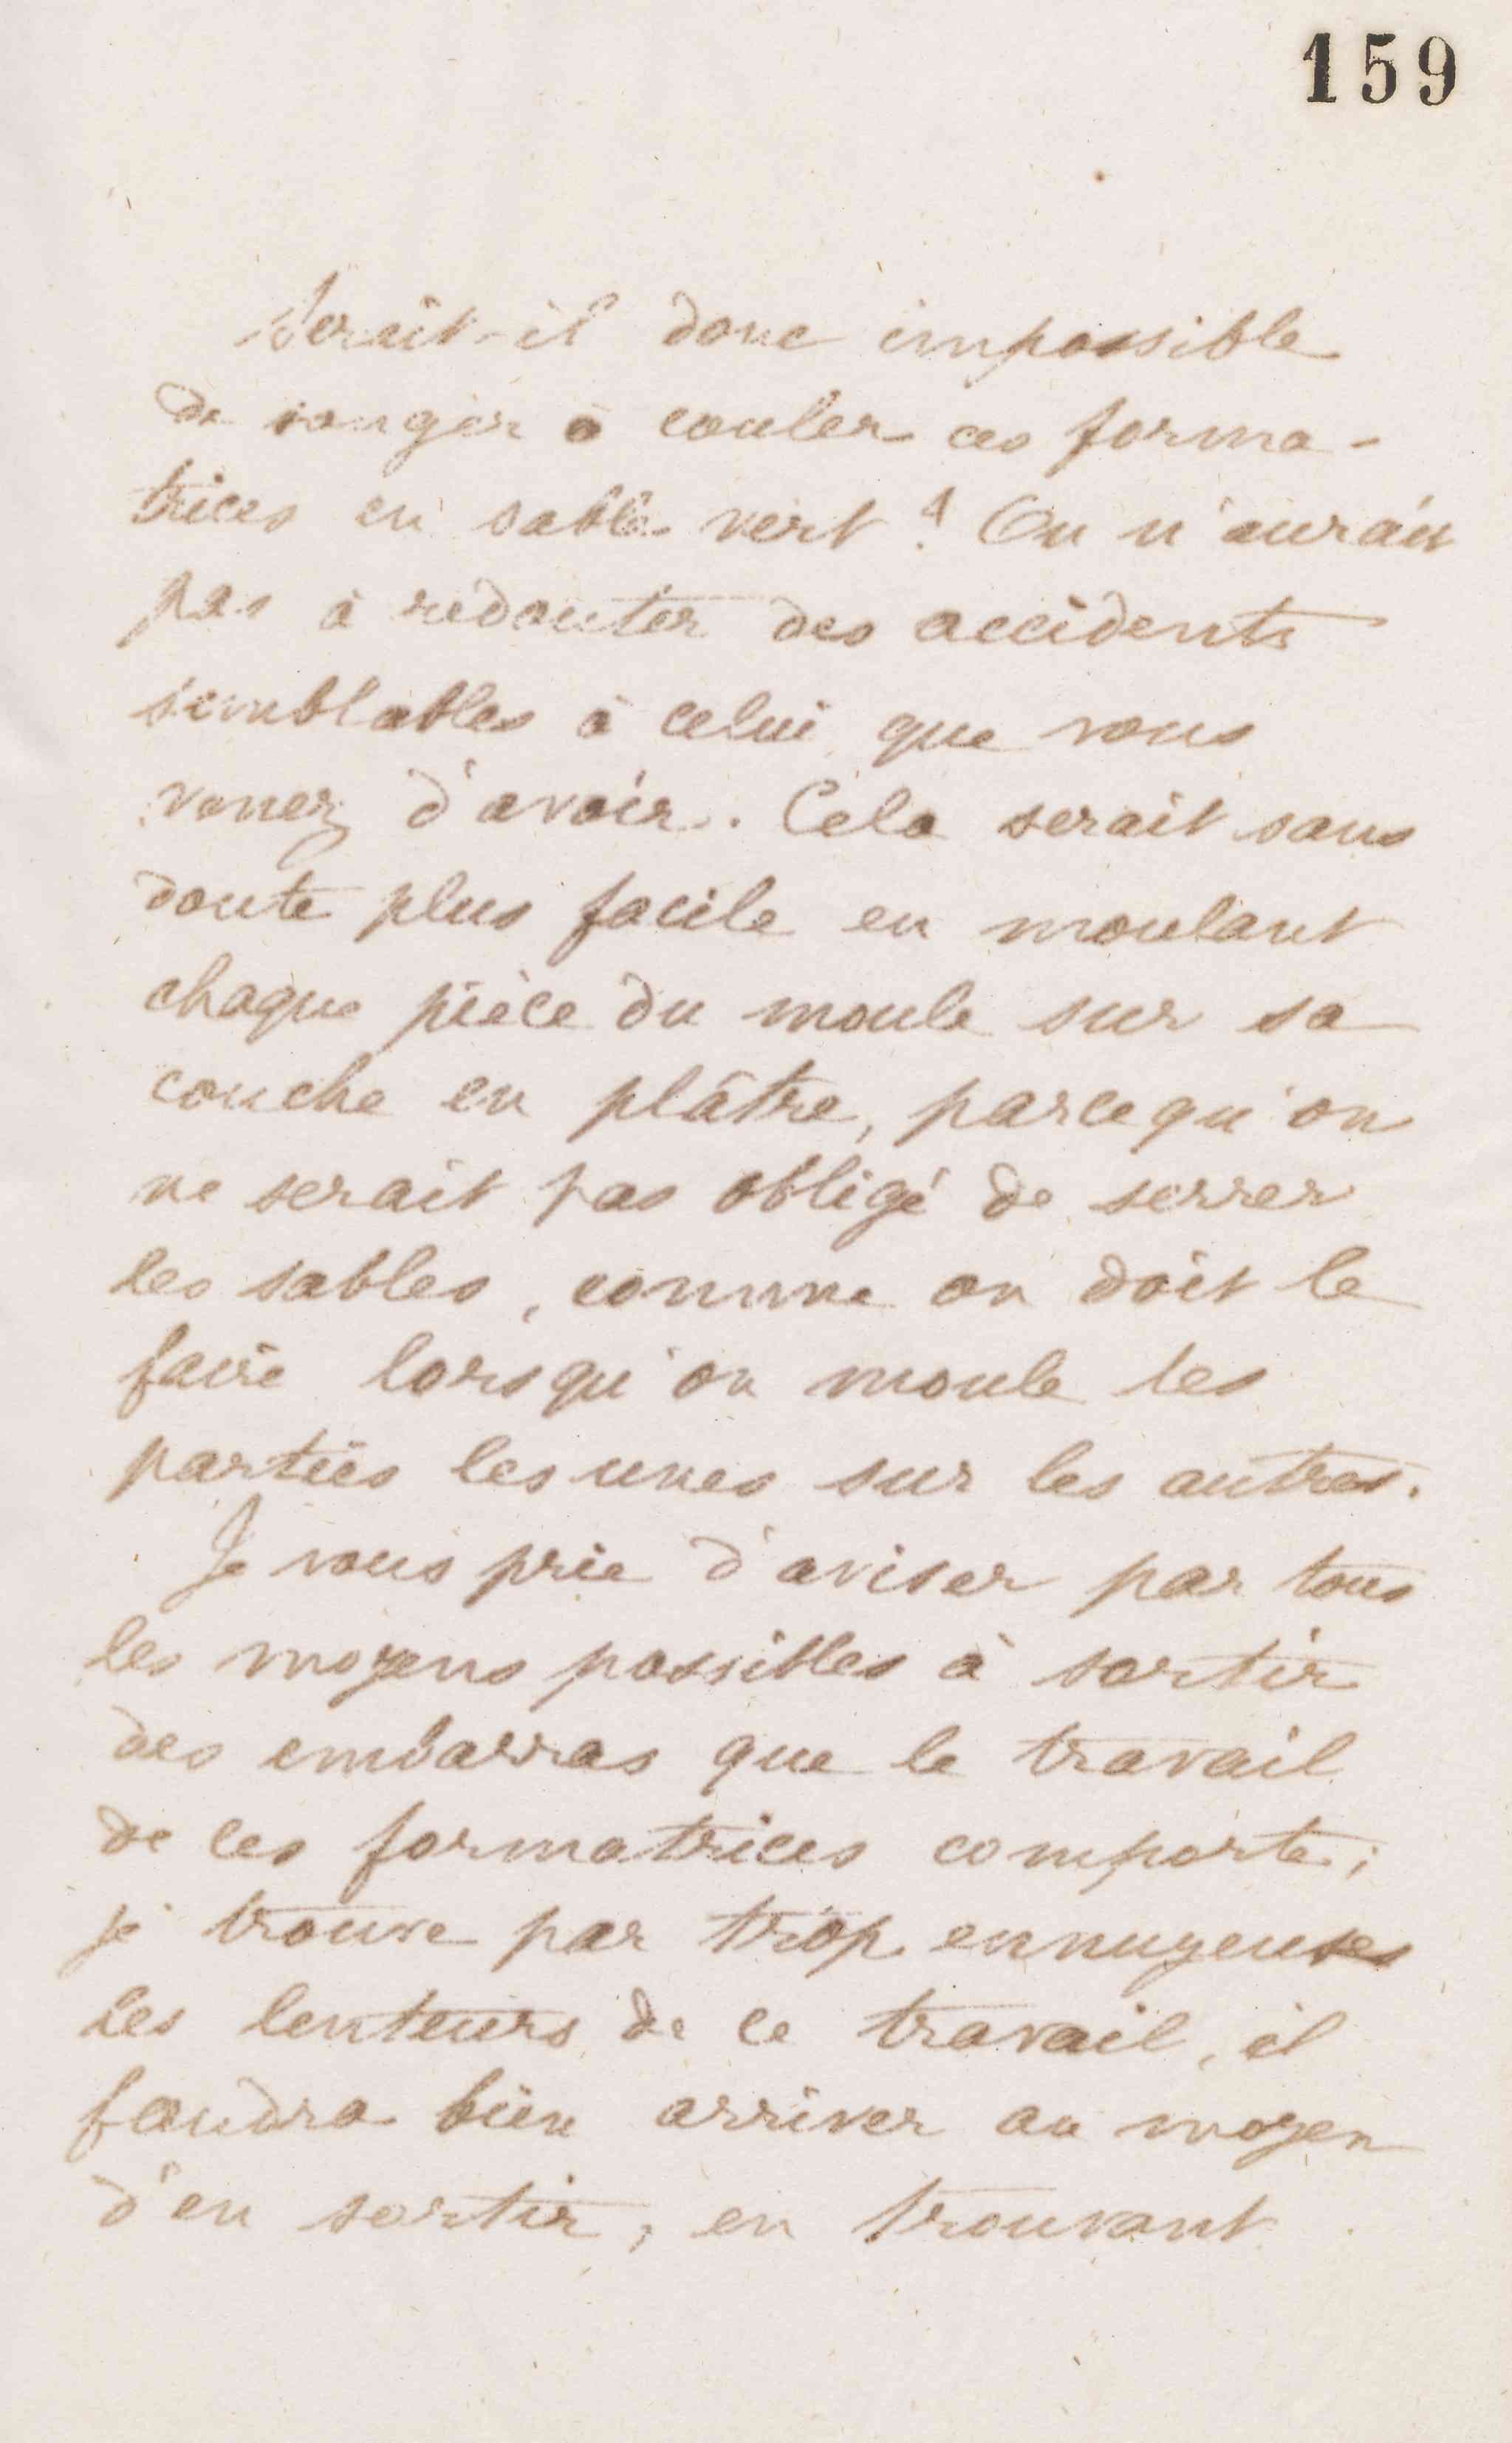 159
Serait-il donc impossible
de songer à couler ces forma-
trices en sable vert ? On n'aurait
pas à redouter des accidents
semblables à celui que vous
venez d'avoir. Cela serait sans
doute plus facile en moulant
chaque pièce du moule sur sa
couche en plâtre, parcequ'on
ne serait pas obligé de serrer
les sables, comme on doit le
faire lorsqu'on moule les
parties les unes sur les autres.
Je vous prie d'aviser par tous
les moyens possibles à sortir
des embarras que le travail
de ces formatrices comporte ;
je trouve par trop ennuyeuses
les lenteurs de ce travail, il
faudra bien arriver au moyen
d'en sortir, en trouvant